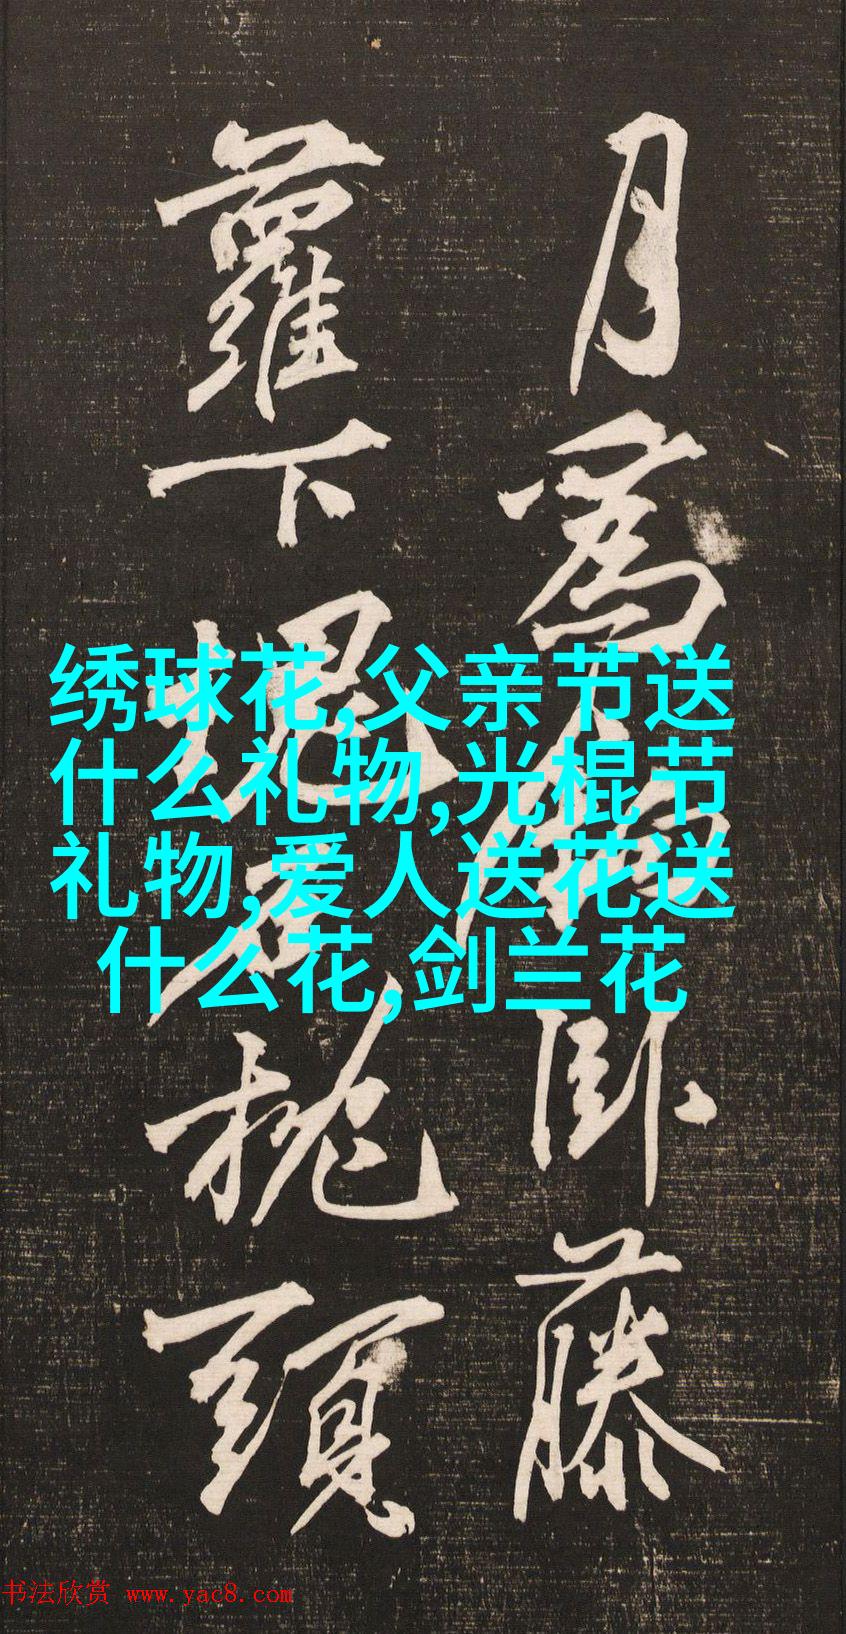 月為臥藤
蘿下塊石枕頭
绣球花,父亲节送
什么礼物,光棍节
礼物,爱人送花送
什么花,剑兰花
书法欣赏 www.yac8.com